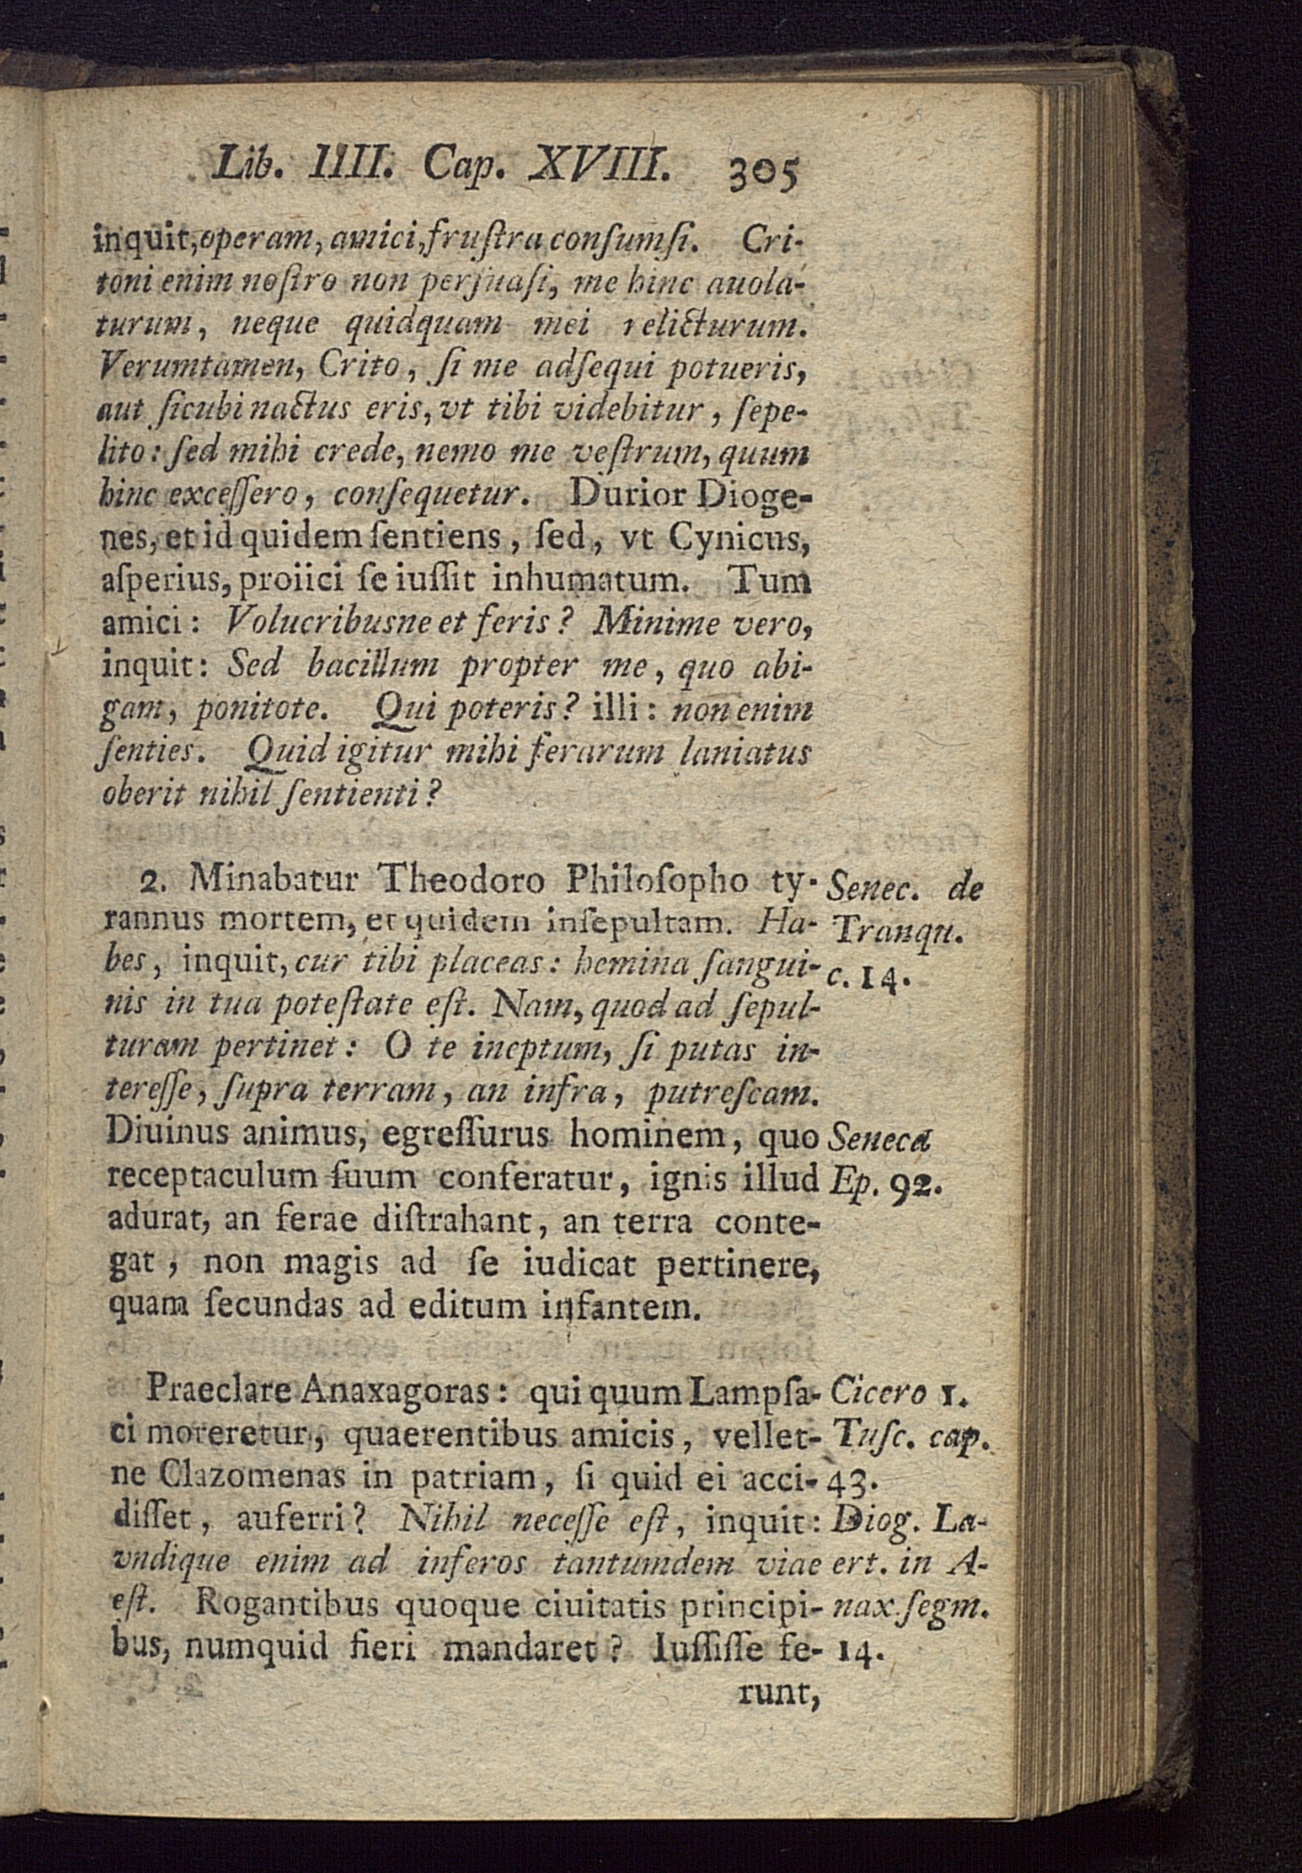 Lib. IIII. Cap. XVIII. 305
inquit, operam, amici, fruſtra conſumſi. Cri-
toni enim noſtro non perſuaſi, me hinc auola-
turum, neque quidquam mei relicturum.
Verumtamen, Crito, ſi me adſequi potueris,
aut ſicubi nactus eris, vt tibi videbitur, ſepe-
lito: ſed mihi crede, nemo me veſtrum, quum
hinc exceſſero, conſequetur. Durior Dioge-
nes, et id quidem ſentiens, ſed, vt Cynicus,
aſperius, proiici ſe iuſſit inhumatum. Tum
amici: Volucribusne et feris? Minime vero,
inquit: Sed bacillum propter me, quo abi-
gam, ponitote. Qui poteris? illi: non enim
ſenties. Quid igitur mihi ferarum laniatus
oberit nihil ſentienti?
2. Minabatur Theodoro Philoſopho ty-
rannus mortem, et quidem inſepultam. Ha-
bes, inquit, cur tibi placeas: hemina ſangui-
nis in tua poteſtate eſt. Nam, quod ad ſepul-
turam pertinet: O te ineptum, ſi putas in-
tereſſe, ſupra terram, an infra, putreſcam.
Diuinus animus, egreſſurus hominem, quo
receptaculum ſuum conferatur, ignis illud
adurat, an ferae diſtrahant, an terra conte-
gat, non magis ad ſe iudicat pertinere,
quam ſecundas ad editum infantem.
Senec. de
Tranqu.
c. 14.
Seneca
Ep. 92.
Praeclare Anaxagoras: qui quum Lampſa-
ci moreretur, quaerentibus amicis, vellet-
ne Clazomenas in patriam, ſi quid ei acci-
diſſet, auferri? Nihil neceſſe eſt, inquit:
vndique enim ad inferos tantumdem viae
eſt. Rogantibus quoque ciuitatis principi-
bus, numquid fieri mandaret? Iuſſiſſe fe-
runt,
Cicero 1.
Tuſc. cap.
43.
Diog. La-
ert. in A-
nax. ſegm.
14.